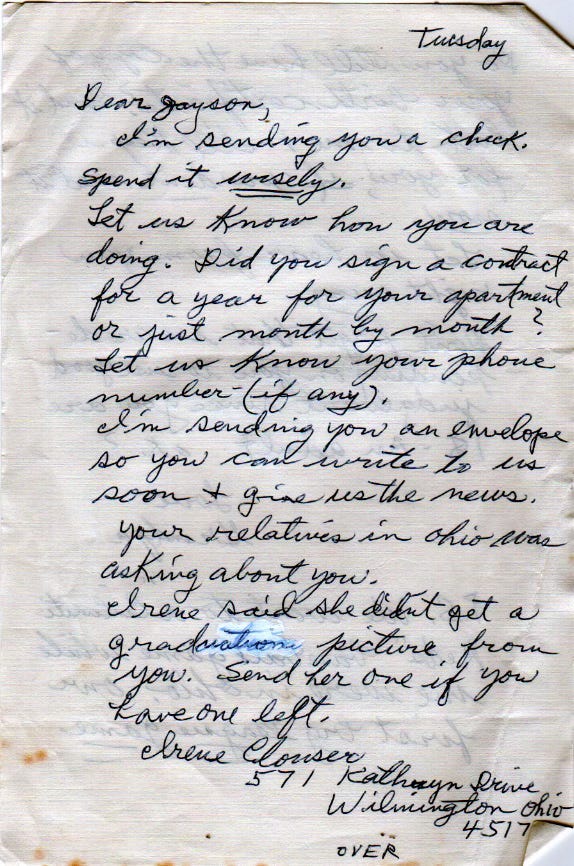 Tuesday
Dear Jayson,
I'm sending you a check.
Spend it wisely.
Let us know how you are
doing. Did you sign a contract
for a year for your apartment
or just month by month?
Let us know your phone
number (if any).
I'm sending you an envelope
so you can write to us
soon + give us the news.
Your relatives in Ohio was
asking about you.
Irene said she didn't get a
graduation picture from
you. Send her one if you
have one left.
Irene Clouser
571 Kathryn Drive
Wilmington Ohio
4517
OVER